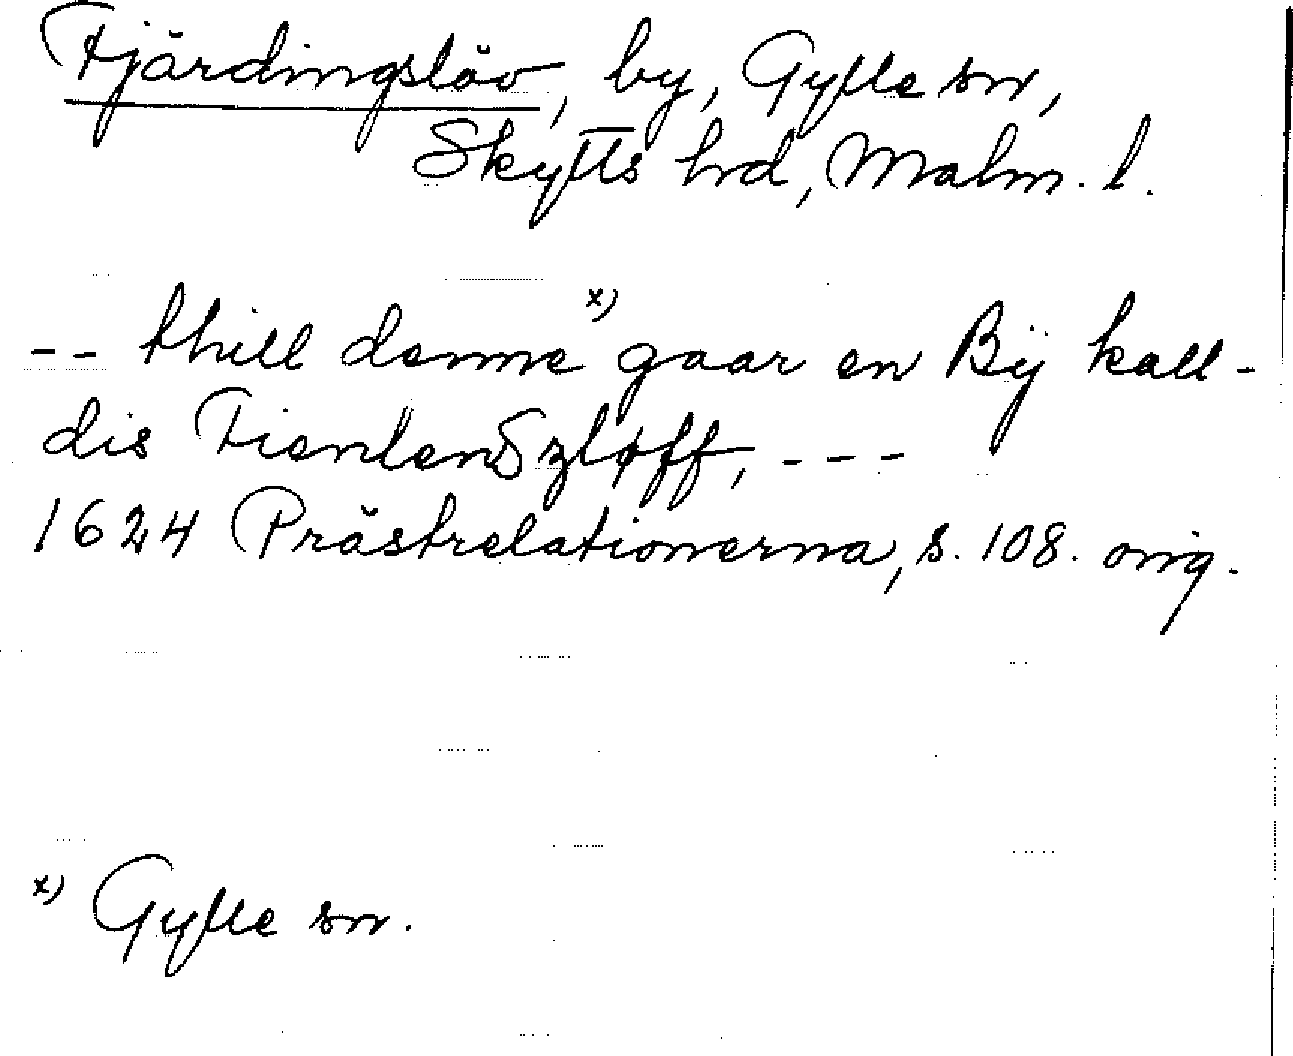 Fjärdingslöv, by, Gylle sn,
Skytts hd, Malm. l.
-- thill denne x) gaar en Bÿ kall-
dis FienlenSzløff, ---
1624 Prästrelationerna, s. 108. orig.
x) Gylle sn.